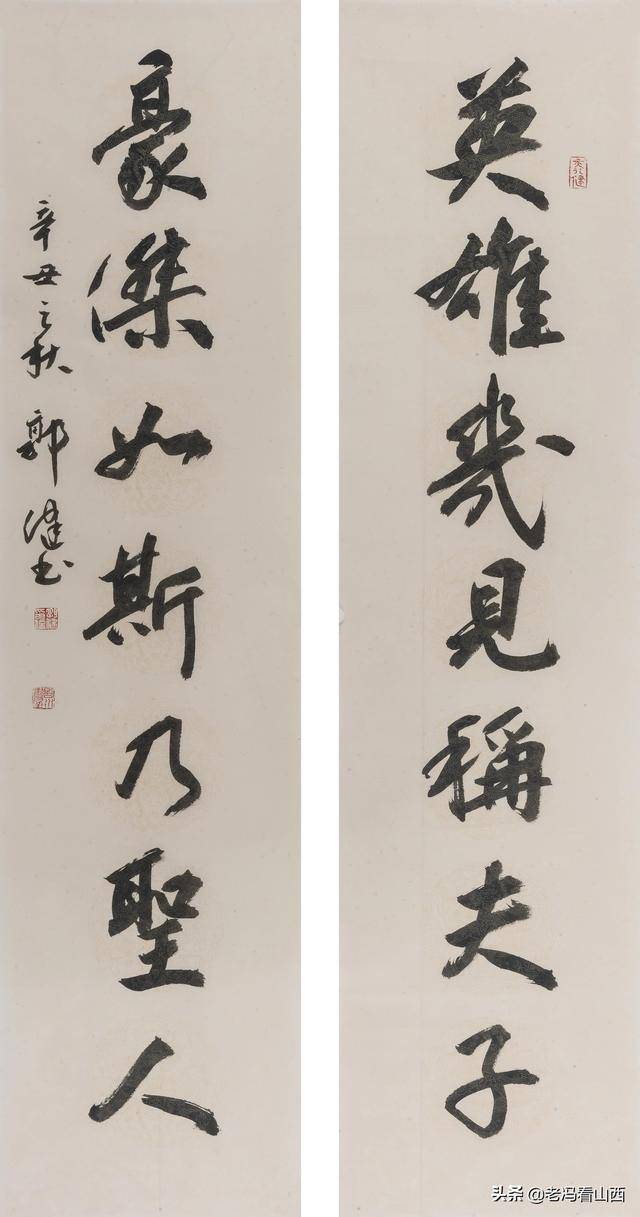 英雄幾見稱夫子
豪傑如斯乃聖人
辛丑之秋 郭健書
头条 @老冯看山西